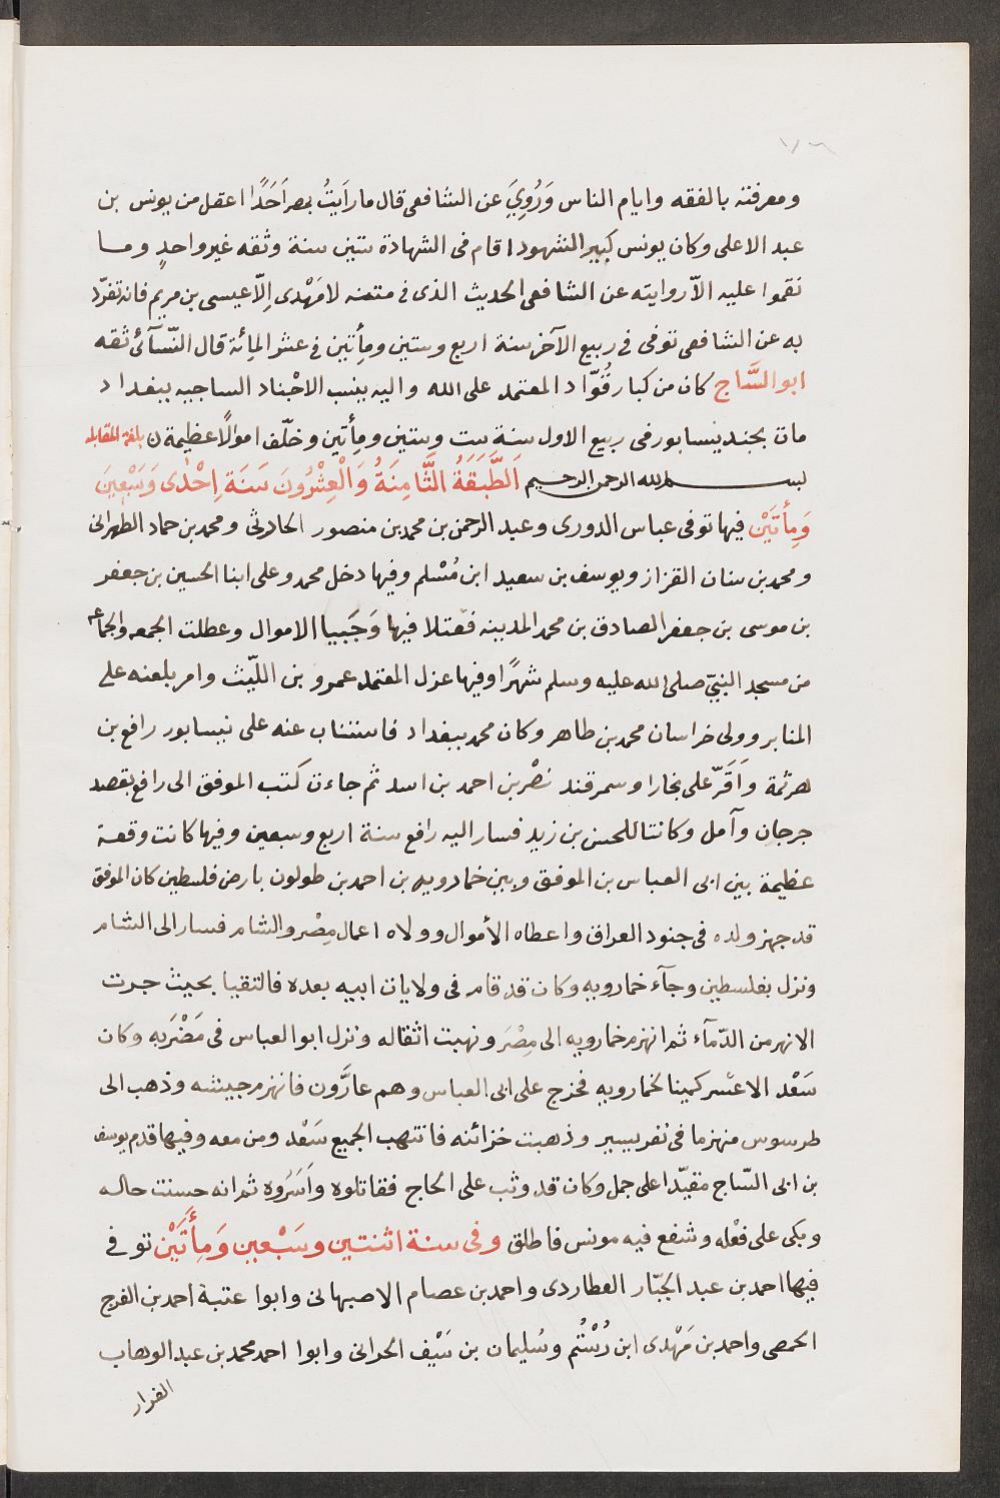 ١٧٦
ومعرفته بالفقه وايام الناس وَرُوِيَ عن الشافعى قال ما رَايتُ بمصر اَحَدًا اعقل من يونس بن
عبد الاعلى وكان يونس كبير الشهود اقام فى الشهادة ستين سنة وثقه غير واحدٍ وما
نقموا عليه الاّ روايته عن الشافعى الحديث الذى فى متنه لا مَهْدى اِلّا عيسى بن مريم فانه تفرّد
به عن الشافعى توفى فى ربيع الآخر سنة اربع وستين ومِأتين فى عشر المِائة قال النّسآئى ثقه
ابو السَّاج كان من كبار قُوّاد المعتمد على الله واليه ينسب الاجْناد الساجيه ببغداد
مات بجنديسابور فى ربيع الاول سنة ست وستين ومِأتين وخلّف اموالًا عظيمة ن بلغة المقابله
بسم الله الرحمن الرحيم اَلطَّبَقَةُ الثَّامِنَةُ وَالْعِشْرُونَ سَنَة اِحْدٰى وَسَبْعِينَ
وَمِأَتَيْن فيها توفى عباس الدورى وعبد الرحمن بن محمد بن منصور الحارثى ومحمد بن حماد الطهرانى
ومحمد بن سنان القزاز ويوسف بن سعيد ابن مُسْلم وفيها دخل محمد وعلى ابنا الحسين بن جعفر
بن موسى بن جعفر الصادق بن محمد المدينه فقتلا فيها وَجَبيا الاموال وعطلت الجمعه والجماعه
من مسجد النبيّ صلى الله عليه وسلم شهرًا وفيها عزل المعتمد عمرو بن اللّيث وامر بلعنه على
المنابر وولى خراسان محمد بن طاهر وكان محمد ببغداد فاستناب عنه على نيسابور رافع بن
هرثمة وَاَقَرّ على بخارا وسمرقند نصْر بن احمد بن اسد ثم جاءت كتب الموفق الى رافع بقصد
جرجان وآمل وكانتا للحسن بن زيد فسار اليه رافع سنة اربع وسبعين وفيها كانت وقعة
عظيمة بين ابى العباس بن الموفق وبين خمارويه بن احمد بن طولون بارض فلسطين كان الموفق
قد جهز ولده فى جنود العراق واعطاه الأموال وولاه اعمال مِصْر والشام فسار الى الشام
ونزل بفلسطين وجآء خمارويه وكان قد قام فى ولايات ابيه بعده فالتقيا بحيث جرت
الانهر من الدّمآء ثم انهزم خمارويه الى مِصْرَ ونهبت اثقاله ونزل ابو العباس فى مَضْرَبِه وكان
سَعْد الاعسر كمينا لخمارويه فخرج على ابى العباس وهم عارَّون فانهزم جيشه وذهب الى
طرسوس منهزما فى نفر يسير وذهبت خزائنه فانتهب الجميع سَعْد ومن معه وفيها قدم يوسف
بن ابى السّاج مقيّدا على جمل وكان قد وثب على الحاج فقاتلوه وَاَسَرُوه ثم انه حسنت حاله
وبكى على فعْله وشفع فيه مونس فاطلق وفى سنة اثنتين وسَبْعين وَمِأَتَيْن توفى
فيها احمد بن عبد الجبّار العطاردى واحمد بن عصام الاصبهانى وابوا عتبة احمد بن الفرج
الحمصى واحمد بن مَهْدى ابن رُسْتُم وسُليمان بن سَيْف الحرانى وابوا احمد محمد بن عبد الوهاب
الفرار